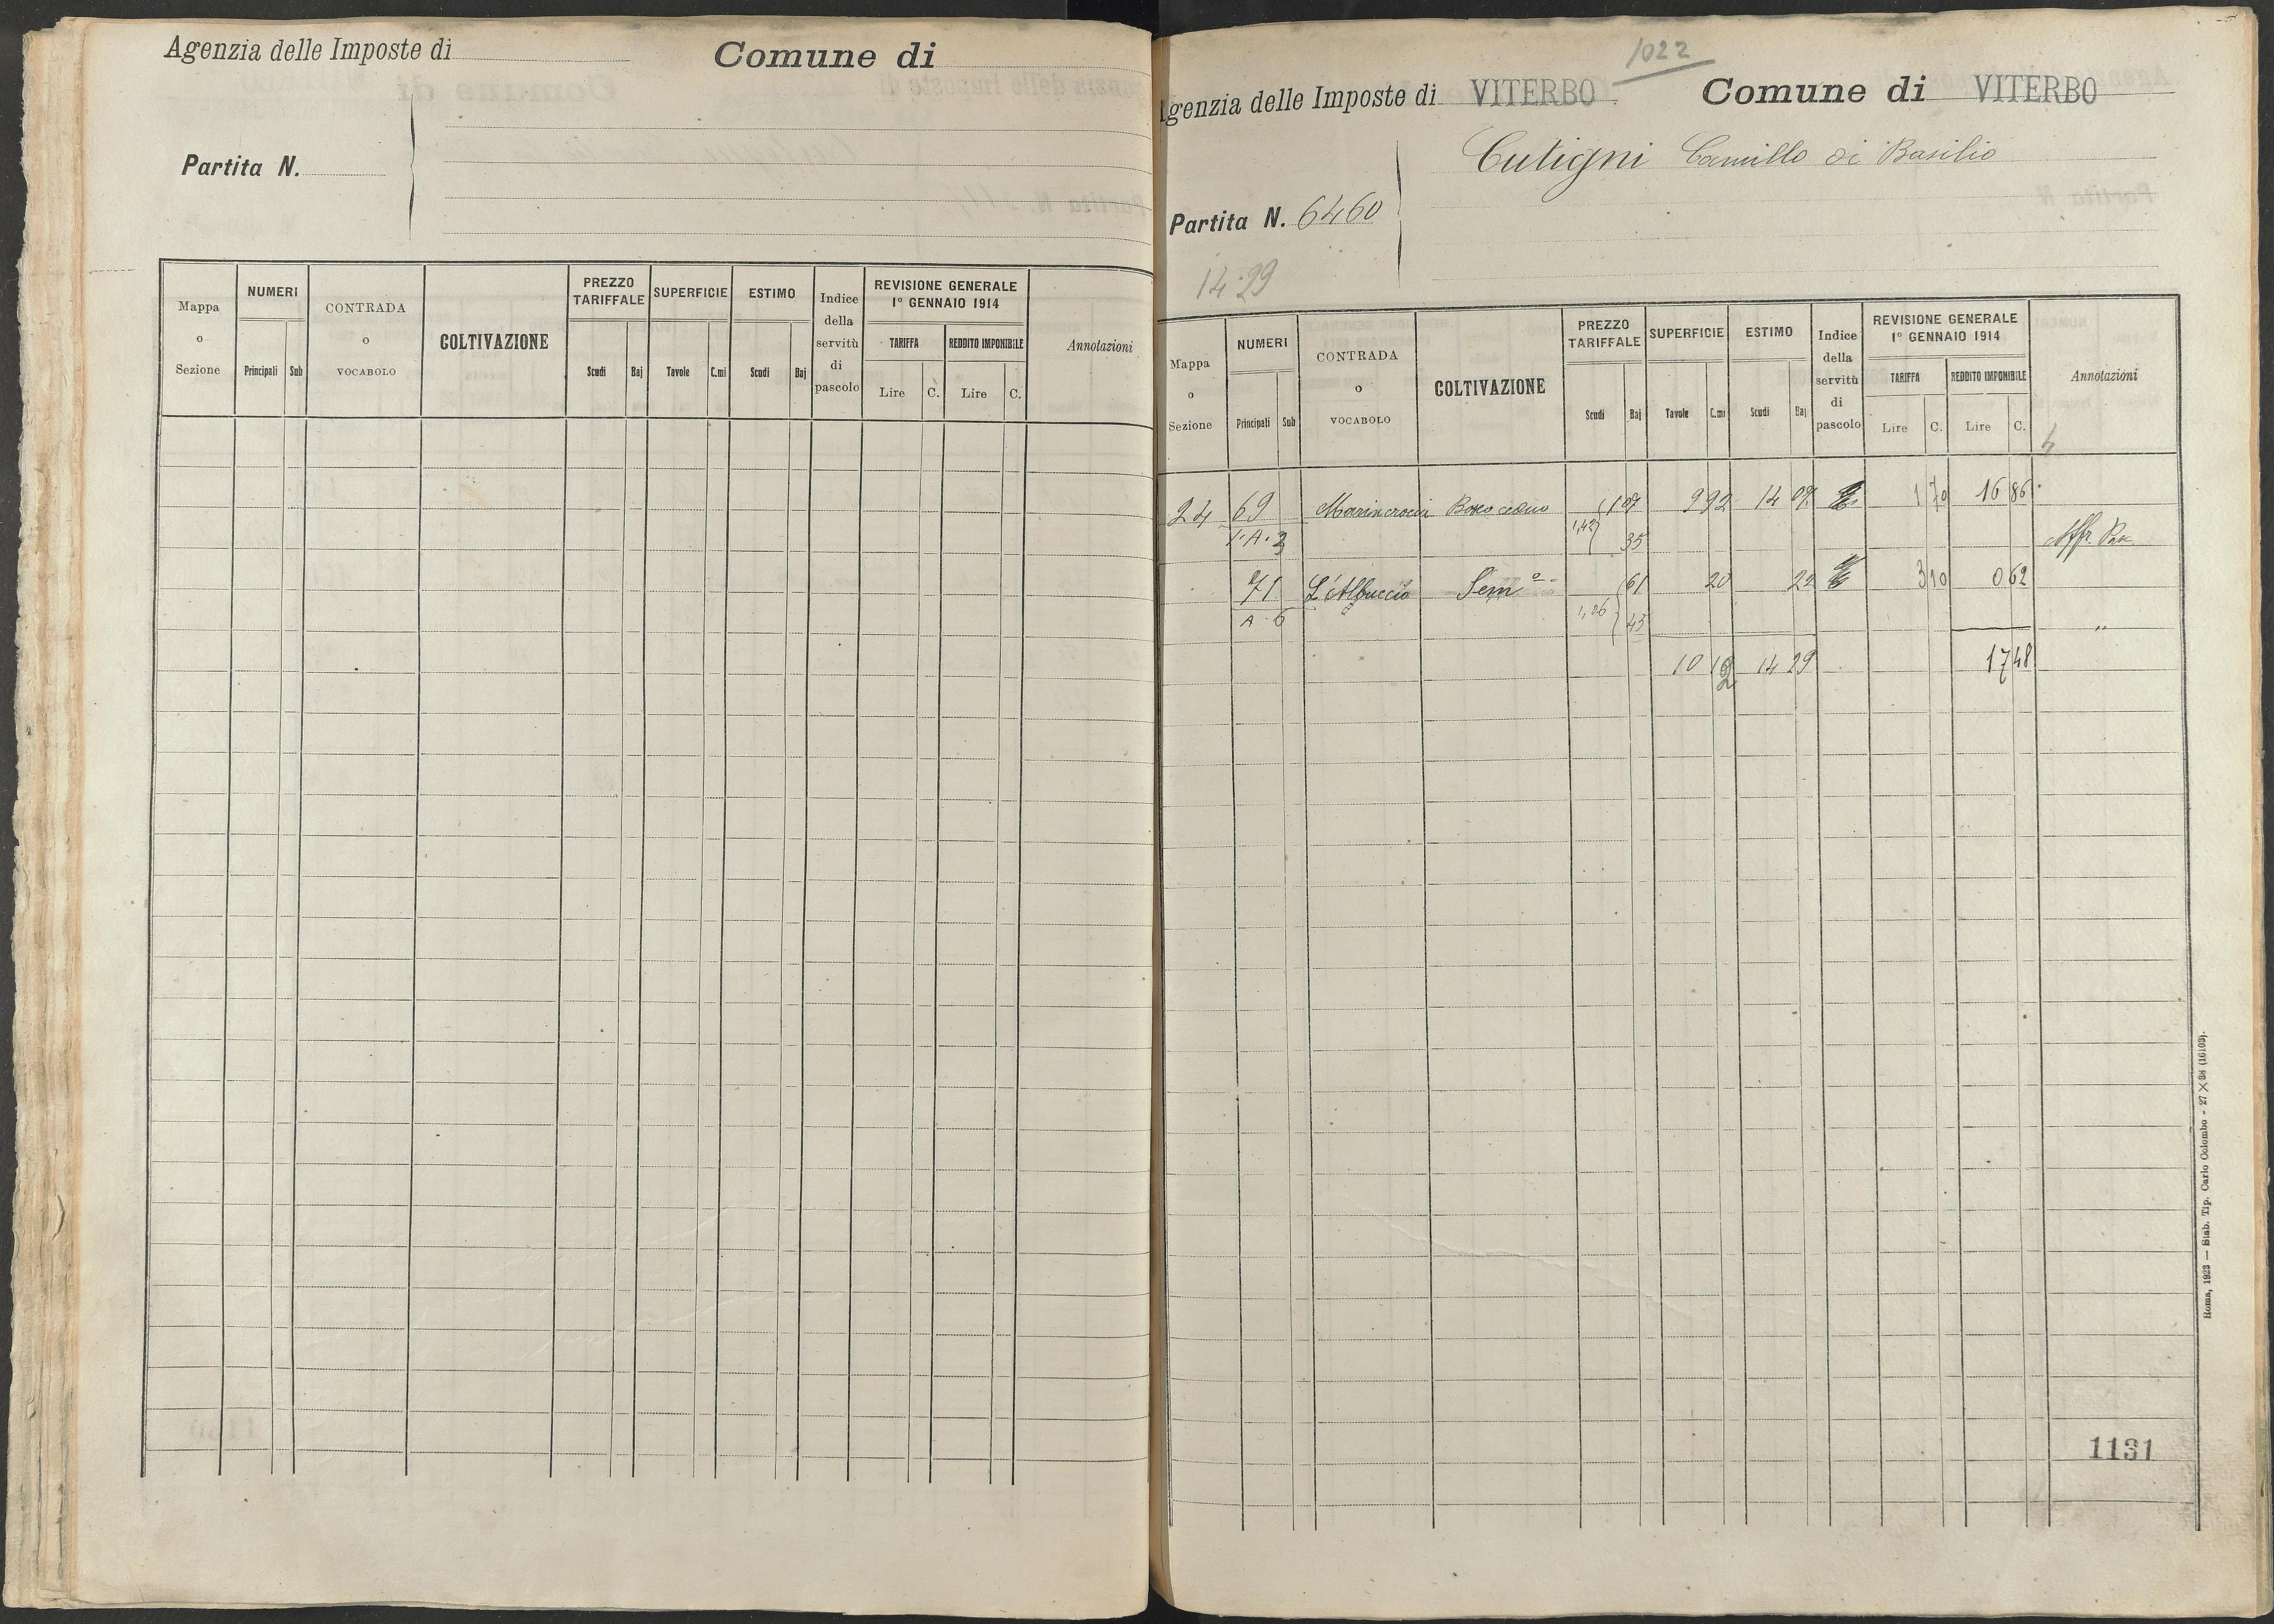 Agenzia delle Imposte di Comune di
Partita N.
Mappa o Sezione
NUMERI
Principali Sub
CONTRADA o VOCABOLO
COLTIVAZIONE
PREZZO TARIFFALE
Scudi Baj
SUPERFICIE
Tavole C.mi
ESTIMO
Scudi Baj
Indice della servitù di pascolo
REVISIONE GENERALE
1° GENNAIO 1914
TARIFFA
Lire C.
REDDITO IMPONIBILE
Lire C.
Annotazioni
1022
Agenzia delle Imposte di VITERBO Comune di VITERBO
Cutigni Camillo di Basilio
Partita N. 6460
14.29
Mappa o Sezione
NUMERI
Principali Sub
CONTRADA o VOCABOLO
COLTIVAZIONE
PREZZO TARIFFALE
Scudi Baj
SUPERFICIE
Tavole C.mi
ESTIMO
Scudi Baj
Indice della servitù di pascolo
REVISIONE GENERALE
1° GENNAIO 1914
TARIFFA
Lire C.
REDDITO IMPONIBILE
Lire C.
Annotazioni
24 69 Bosco ceduo 1 07 9 92 14 07 1 70 16 86
1,42 35
71 L'Albuccio Sem° 61 20 22 3 10 0 62
A. 6 1,06 45 "
10 12 14 29 17 48
1131
Roma, 1923 — Stab. Tip. Carlo Colombo - 27 X 38 (16103).